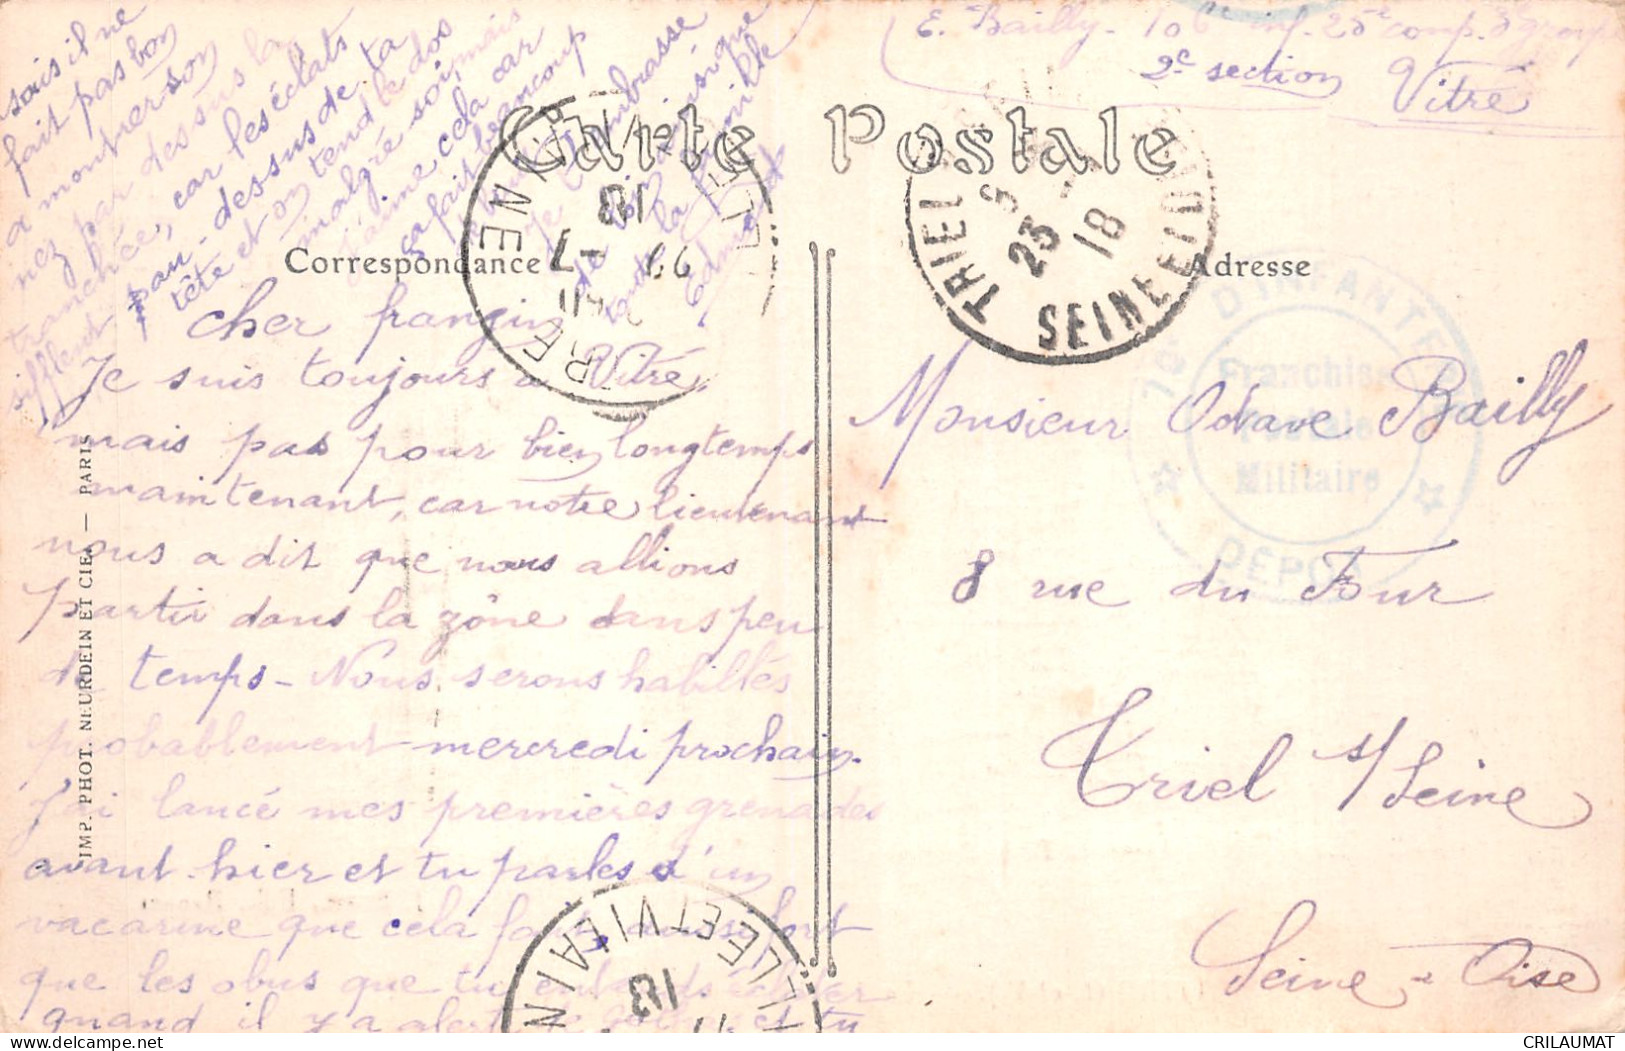 E. Bailly - 106e inf. 25e comp. 8 groupe
2e section Vitré
Carte Postale
Correspondance
Adresse
cher frangin
Je suis toujours à Vitré
mais pas pour bien longtemps
maintenant, car notre lieutenant
nous a dit que nous allions
partir dans la zône dans peu
de temps - Nous serons habillés
probablement mercredi prochain.
J'ai lancé mes premières grenades
avant-hier et tu parles d'un
vacarme que cela fait, aussi fort
que les obus que tu entends éclater
quand il y a alerte et tu
sais il ne
fait pas bon
a montrer son
nez par dessus la
tranchée, car les éclats
sifflent au-dessus de ta
tête et on tend le dos
malgré soi mais
j'aime cela car
ça fait beaucoup
de bruit
je t'embrasse
de loin ainsi que
toute la famille
Edmond
Monsieur Odave Bailly
8 rue du Four
Triel s/ Seine
Seine - Oise
TRIEL
SEINE ET OISE
23 - 18
D'INFANTERIE
Franchise
Postale
Militaire
DÉPOT
ILLE ET VILAINE
18
IMP. PHOT. NEURDEIN ET CIE. — PARIS
CRILAUMAT